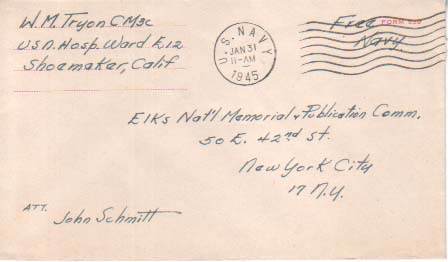 W. M. Tryon CM3c
U.S.N. Hosp. Ward E12
Shoemaker, Calif
U.S. NAVY
JAN 31
11-AM
1945
Free
Navy
Elks Nat'l Memorial & Publication Comm.
50 E. 42nd St.
New York City
17 N.Y.
ATT.
John Schmitt